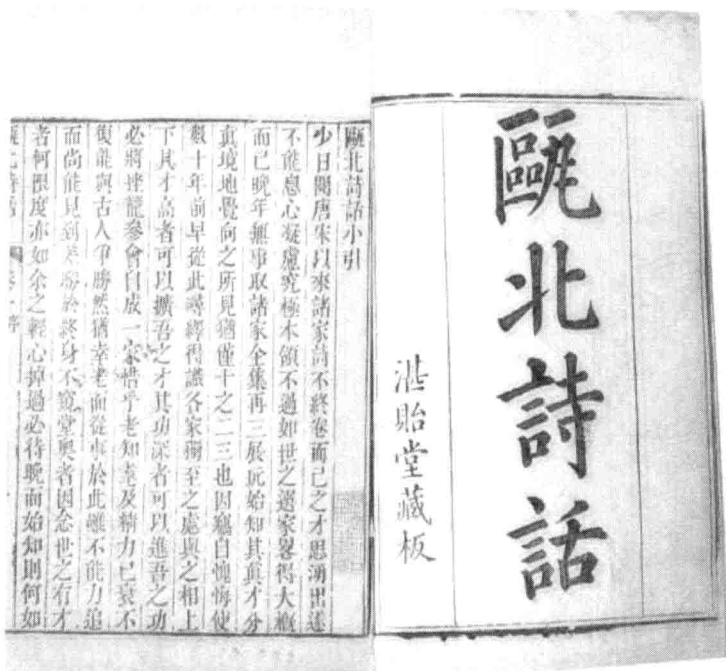 甌北詩話
湛貽堂藏板
甌北詩話小引
少日閱唐宋以來諸家詩不終卷而己之才思湧出遂
不能息心凝慮究極本領不過如世之選家畧得大概
而已晚年無事取諸家全集再三展玩始知其眞才分
眞境地覺向之所見猶僅十之二三也因竊自愧悔使
數十年前早從此尋繹得識各家獨至之處與之相上
下其才高者可以擴吾之才其功深者可以進吾之功
必將挫籠參會自成一家惜乎老知耄及精力已衰不
復能與古人爭勝然猶幸老而從事於此雖不能力追
而尚能見到差勝於終身不窺堂奧者因念世之有才
者何限度亦如余之輕心掉過必待晚而始知則何如